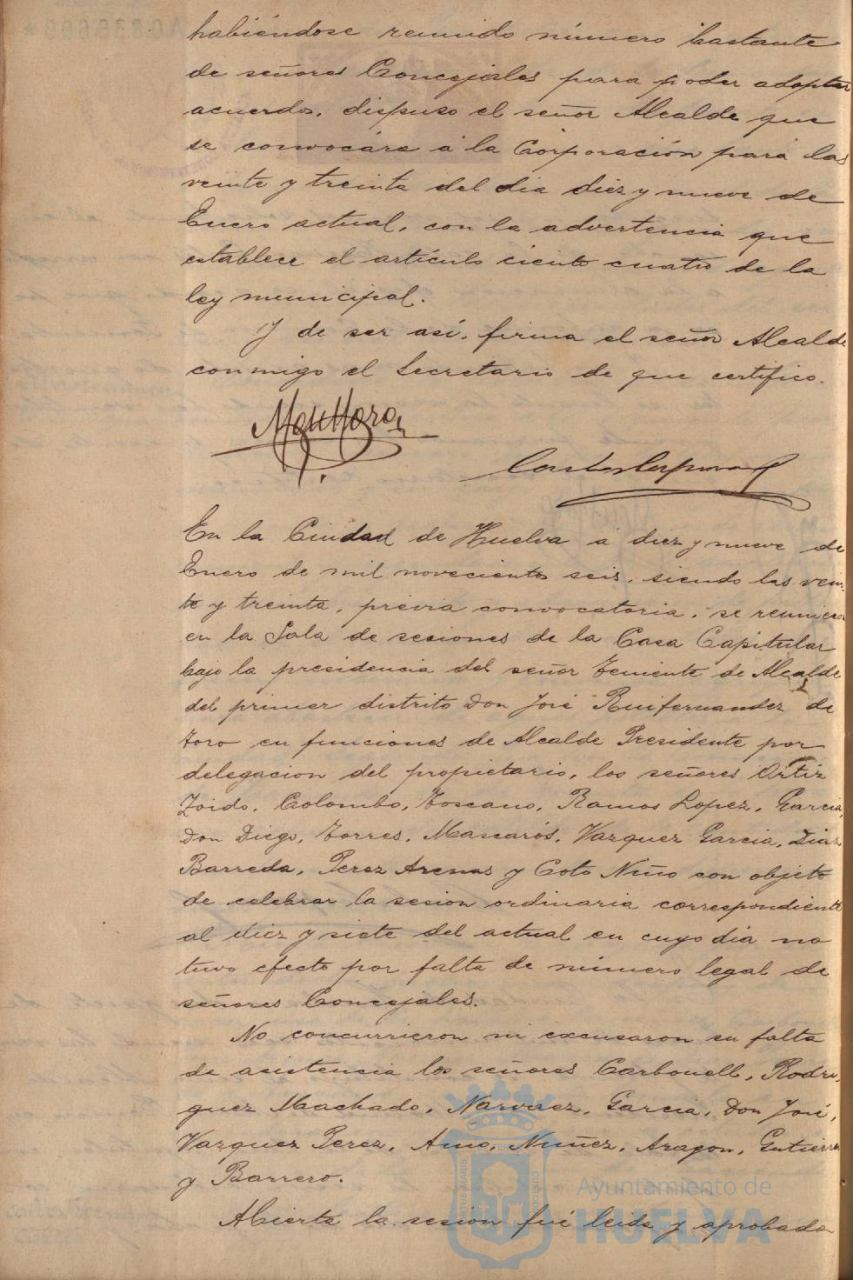 habiéndose reunido número bastante
de señores Concejales para poder adoptar
acuerdo, dispuso el señor Alcalde que
se convocára á la Corporación para las
veinte y treinta del dia diez y nueve de
Enero actual, con la advertencia que
establece el artículo ciento cuatro de la
ley municipal.
Y de ser así, firma el señor Alcalde
conmigo el Secretario de que certifico.
En la Ciudad de Huelva a diez y nueve de
Enero de mil novecientos seis, siendo las vein-
te y treinta, previa convocatoria, se reunieron
en la Sala de sesiones de la Casa Capitular
bajo la presidencia del señor Teniente de Alcalde
del primer distrito Don José Ruifernandez de
Toro en funciones de Alcalde Presidente por
delegacion del propietario, los señores Ortiz
Zoido, Colombo, Toscano, Ramos Lopez, Garcia,
Don Diego, Torres, Mascarós, Vazquez Garcia, Diaz
Barreda, Perez Arenas y Coto Niño con objeto
de celebrar la sesion ordinaria correspondiente
al diez y siete del actual en cuyo dia no
tuvo efecto por falta de número legal de
señores Concejales.
No concurrieron ni excusaron su falta
de asistencia los señores Carbonell, Rodri-
guez Machado, Narvaez, Garcia, Don José,
Vazquez Perez, Amo, Nuñez, Aragon, Gutierrez
y Barrero.
Abierta la sesión fué leida y aprobada
Ayuntamiento de
HUELVA